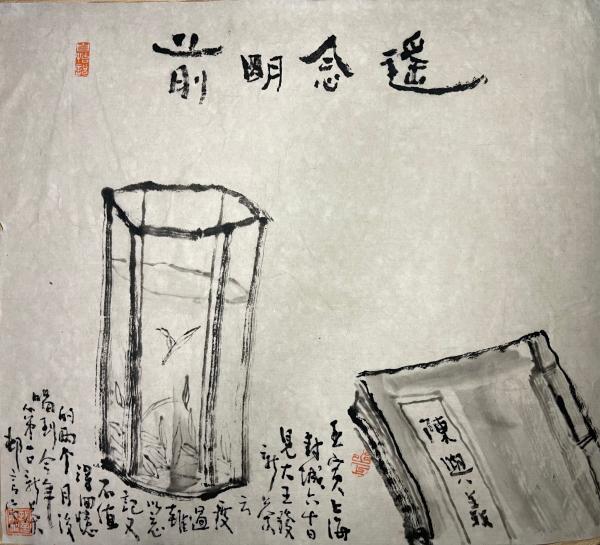 遥念明前
陳與義
壬寅上海
封城六十日
見大王發
新茶
云
度
過
難
以忘
記又
不值
得回憶
的兩个月後
喝到今年
第一口新茶
邨言